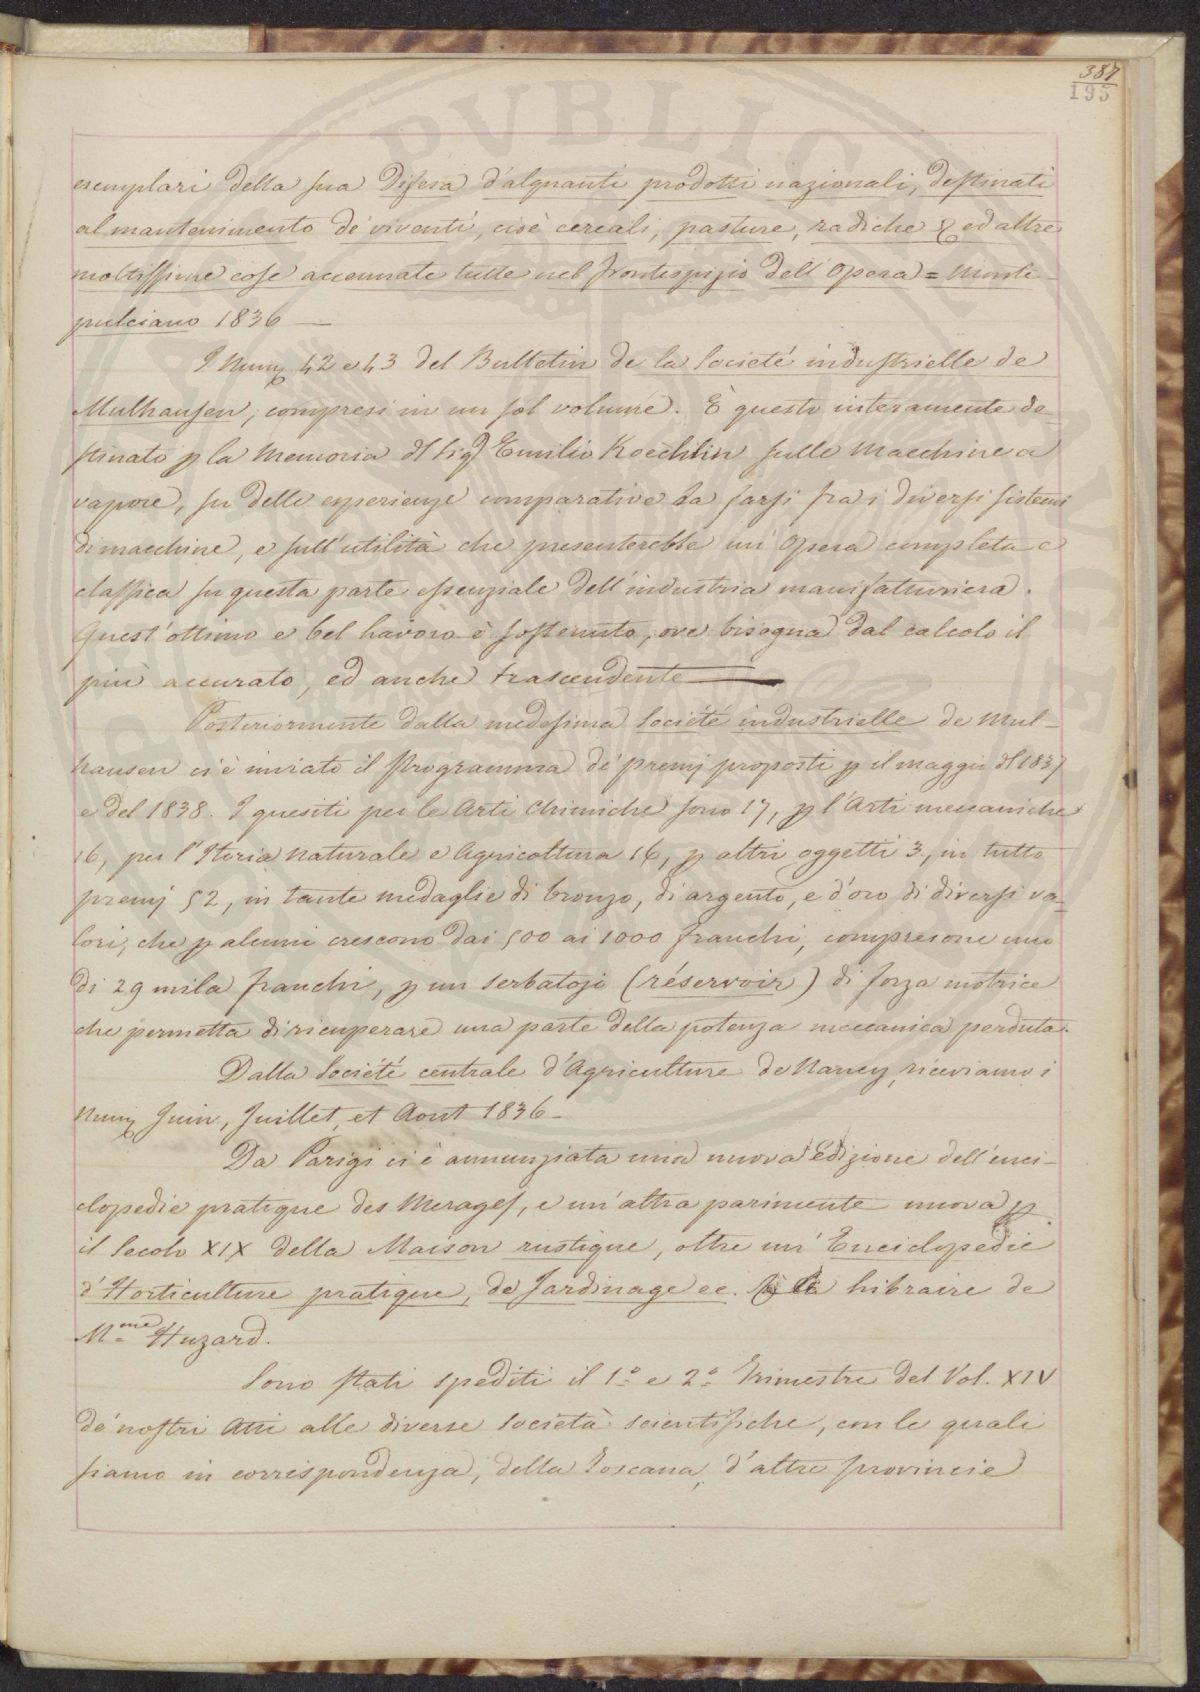 387
195
esemplari della sua Difesa d'alquanti prodotti nazionali, destinati
al mantenimento de' viventi, cioè cereali, pasture, radiche &c ed altre
moltissime cose accennate tutte nel frontespizio dell'Opera = Monte
pulciano 1836 —
I Num. 42 e 43 del Bulletin de la Societé industrielle de
Mulhausen, compresi in un sol volume. È questo interamente de-
stinato p la Memoria del Sig. Emilio Koechlin sulle Macchine a
vapore, su delle esperienze comparative da farsi fra i diversi sistemi
di macchine, e sull'utilità che presenterebbe un'Opera completa e
classica su questa parte essenziale dell'industria manifatturiera.
Quest'ottimo e bel lavoro è sostenuto, ove bisogna dal calcolo il
più accurato, ed anche trascendente —
Posteriormente dalla medesima Société industrielle de Mul-
hausen ci è inviato il Programma de' premj proposti p il maggio del 1837
e del 1838. I quesiti per le Arti Chimiche sono 17, p l'Arti meccaniche
16, per l'Storia Naturale e Agricoltura 16, p altri oggetti 3, in tutto
premj 52, in tante medaglie di bronzo, di argento, e d'oro di diversi va-
lori, che p alcuni crescono dai 500 ai 1000 franchi, compresone uno
di 29 mila franchi, p un serbatojo (réservoir) di forza motrice
che permetta di ricuperare una parte della potenza meccanica perduta.
Dalla Société centrale d'Agriculture de Nancy, riceviamo i
Num. Juin, Juillet, et Aout 1836 -
Da Parigi ci è annunziata una nuova edizione dell'enci-
clopedie pratique des Menages, e un'altra parimente nuova p
il Secolo XIX della Maison rustique, oltre un'Enciclopedie
d'Horticulture pratique, de Jardinage ec. libraire de
M.me Huzard.
Sono stati spediti il 1.o e 2.o Trimestre del Vol. XIV
de' nostri Atti alle diverse Società scientifiche, con le quali
siamo in corrispondenza, della Toscana, d'altre provincie